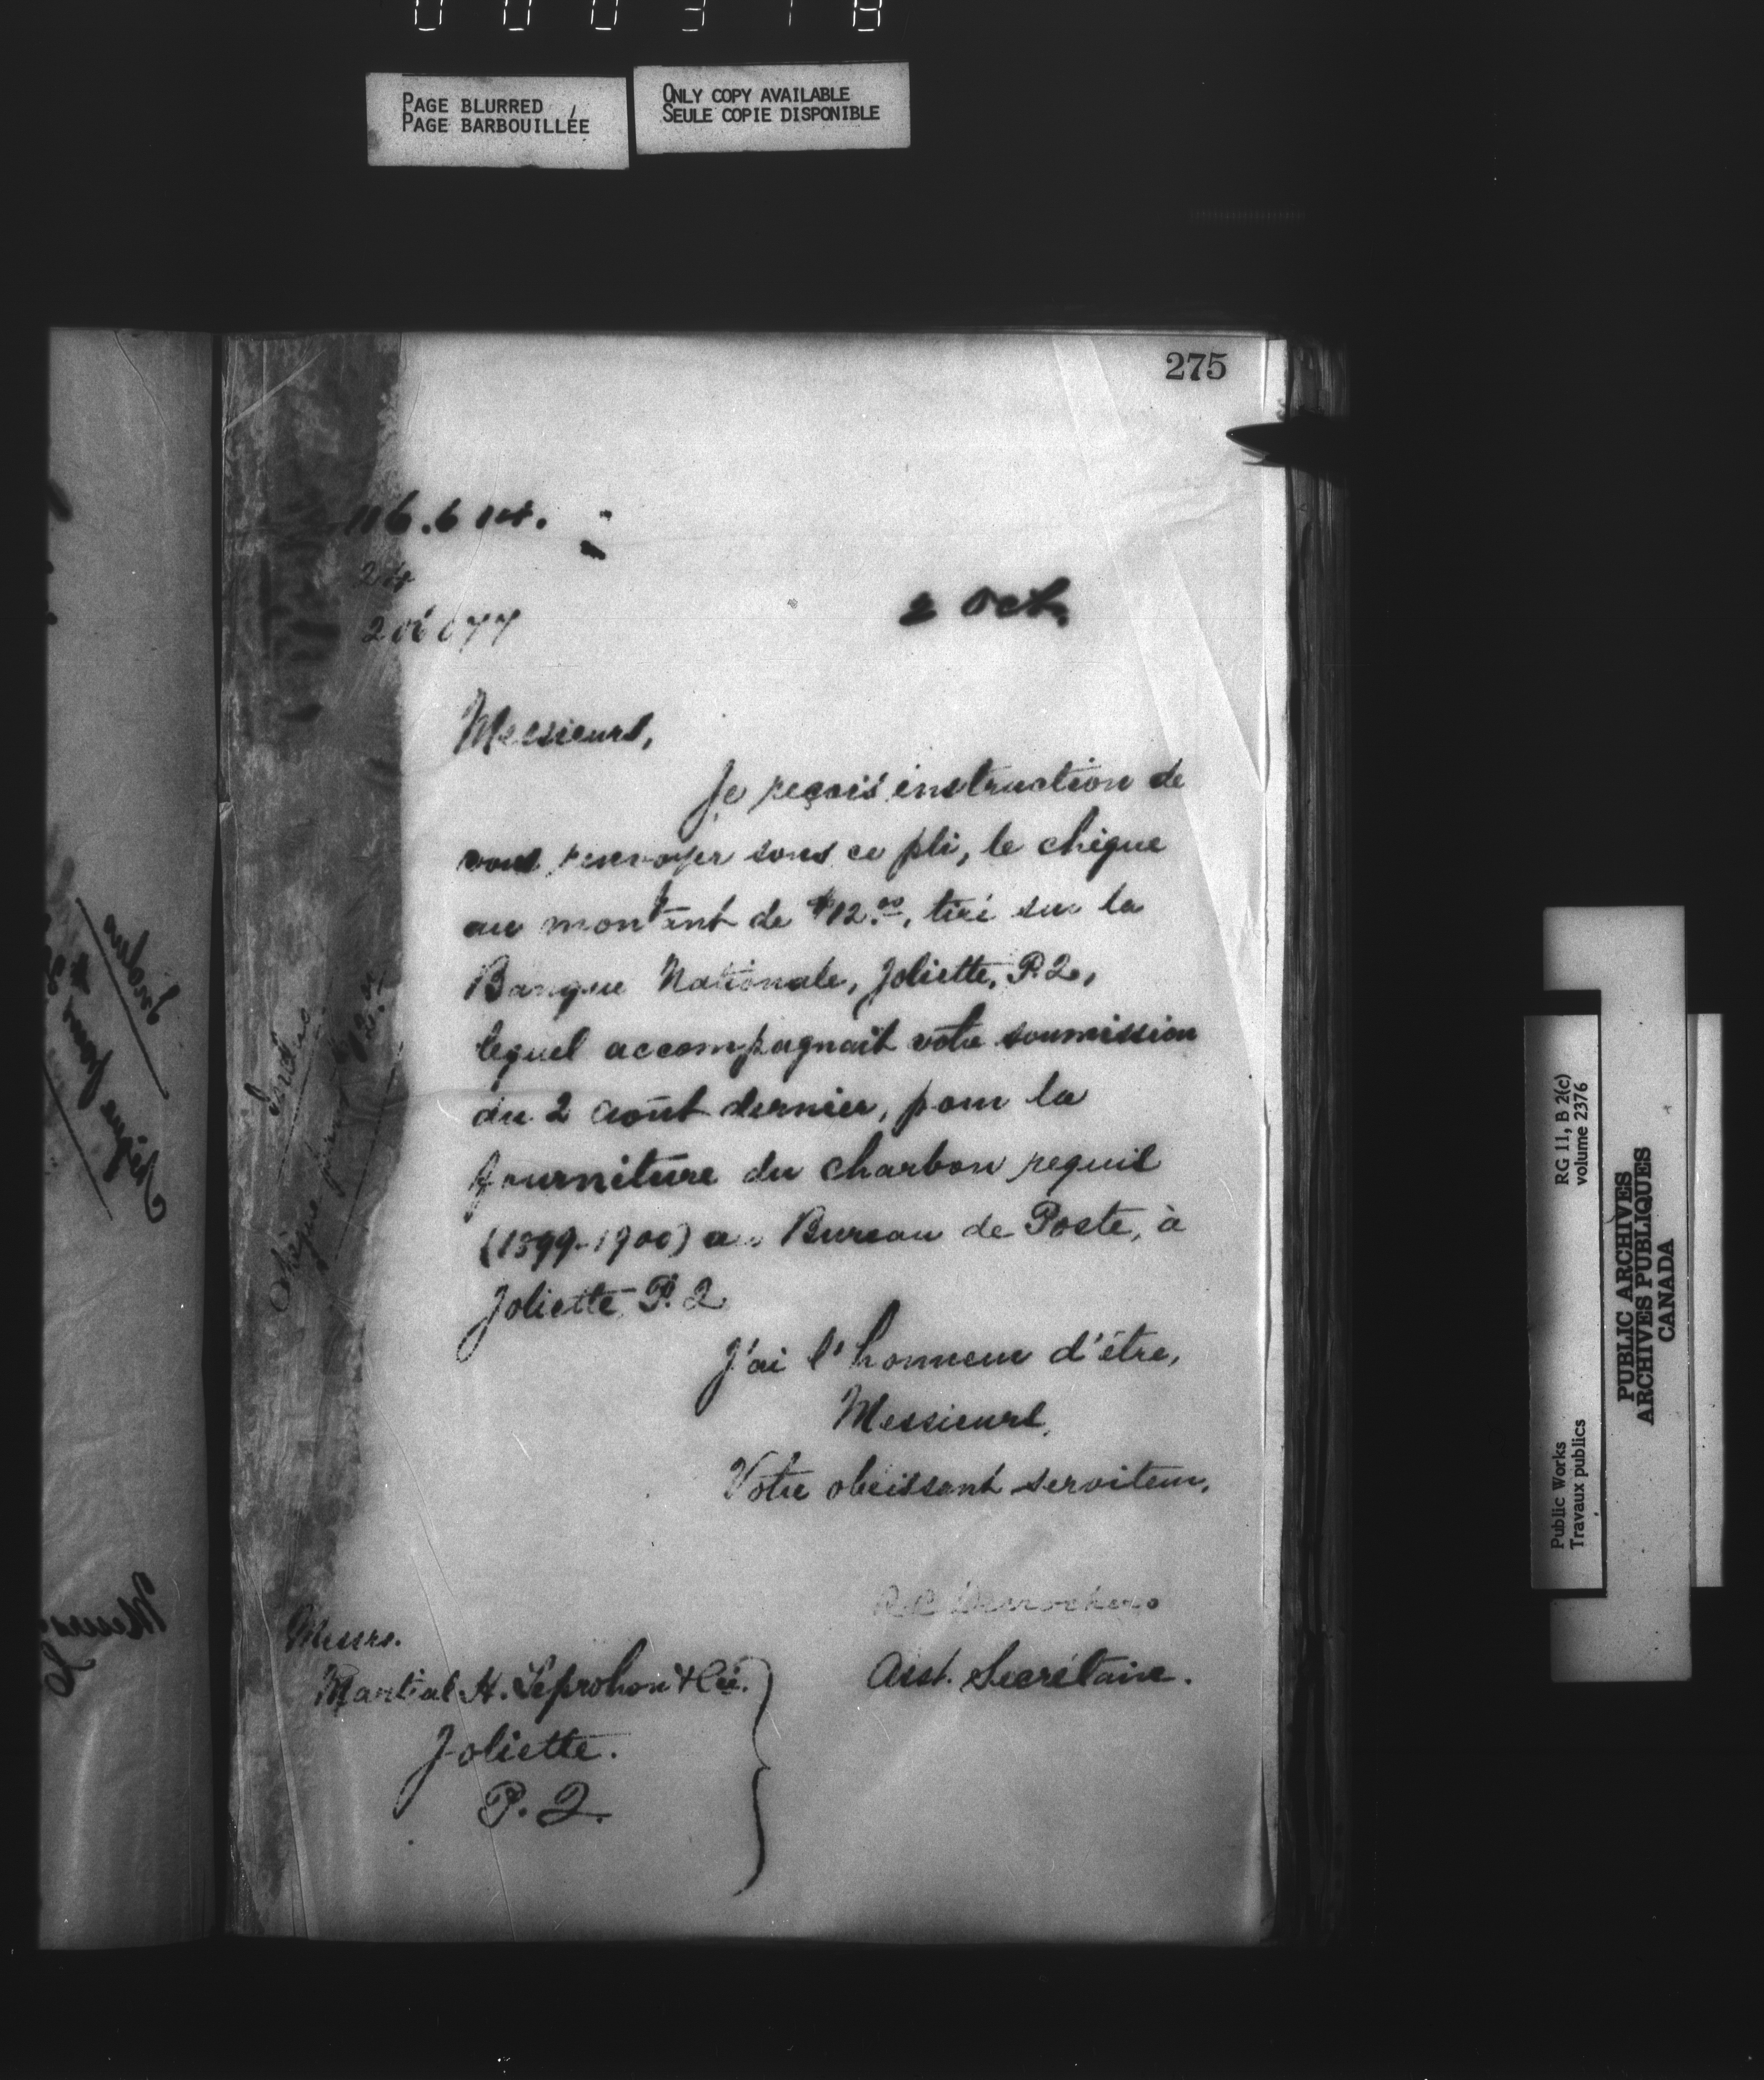 PAGE BLURRED
PAGE BARBOUILLÉE
ONLY COPY AVAILABLE
SEULE COPIE DISPONIBLE
275
2 Oct.
Messieurs,
Je reçois instruction de
vous renvoyer sous ce pli, le chèque
au montant de $12.00, tiré sur la
Banque Nationale, Joliette, P.Q,
lequel accompagnait votre soumission
du 2 août dernier, pour la
fourniture du charbon requis
(1899-1900) au Bureau de Poste, à
Joliette P.Q
J'ai l'honneur d'être,
Messieurs,
Votre obéissant serviteur,
Asst. Secrétaire.
Messrs.
Martial H. Leprohon & Cie.
Joliette.
P.Q.
Inclus
Chèque pour $12.00
Public Works
Travaux publics
RG 11, B 2(c)
volume 2376
PUBLIC ARCHIVES
ARCHIVES PUBLIQUES
CANADA